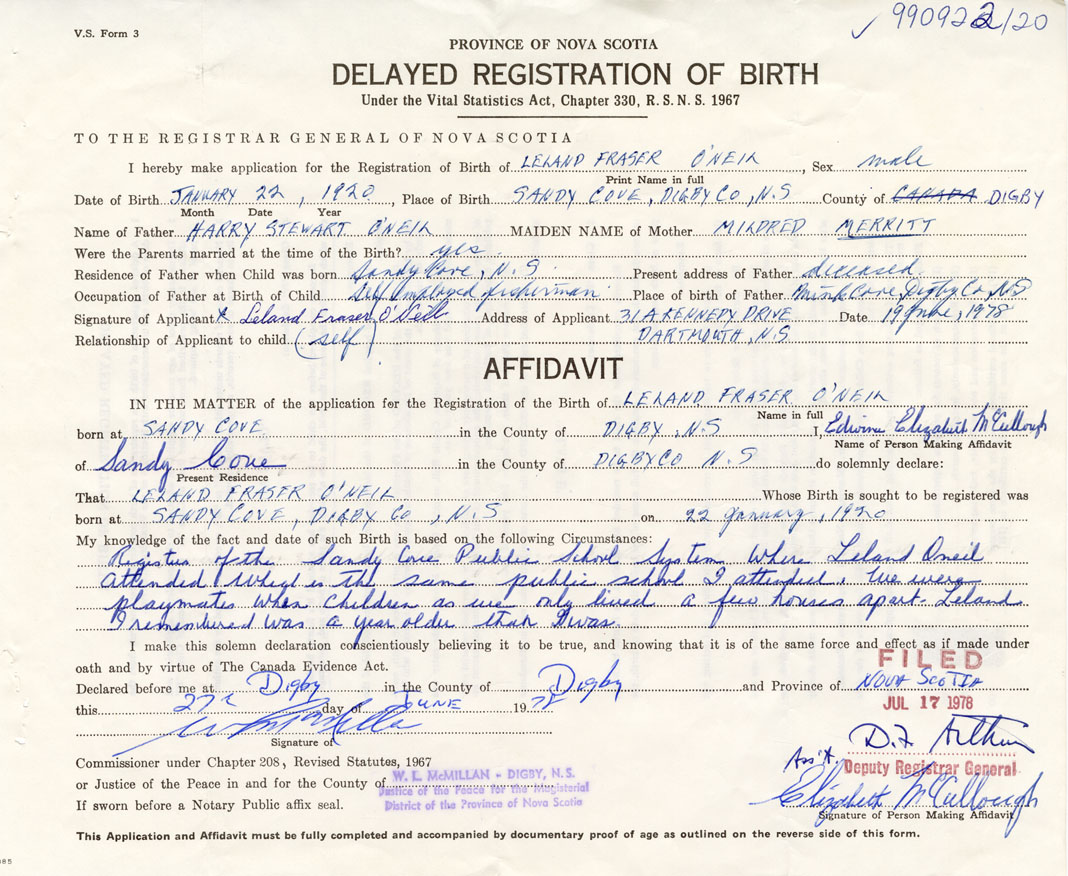 V.S. Form 3
990922/20
PROVINCE OF NOVA SCOTIA
DELAYED REGISTRATION OF BIRTH
Under the Vital Statistics Act, Chapter 330, R.S.N.S. 1967
TO THE REGISTRAR GENERAL OF NOVA SCOTIA
I hereby make application for the Registration of Birth of LELAND FRASER O'NEIL, Sex male
Print Name in full
Date of Birth JANUARY 22, 1920, Place of Birth SANDY COVE, DIGBY CO, N.S County of CANADA DIGBY
Month Date Year
Name of Father HARRY STEWART O'NEIL MAIDEN NAME of Mother MILDRED MERRITT
Were the Parents married at the time of the Birth? yes
Residence of Father when Child was born Sandy Cove, N.S. Present address of Father deceased
Occupation of Father at Birth of Child Self employed fisherman Place of birth of Father Mink Cove Digby Co, N.S
Signature of Applicant X Leland Fraser O'Neil Address of Applicant 31A KENNEDY DRIVE Date 19 June, 1978
Relationship of Applicant to child (self) DARTMOUTH, N.S
AFFIDAVIT
IN THE MATTER of the application for the Registration of the Birth of LELAND FRASER O'NEIL
Name in full
born at SANDY COVE in the County of DIGBY, N.S I, Edwina Elizabeth McCullough
Name of Person Making Affidavit
of Sandy Cove in the County of DIGBY CO N.S do solemnly declare:
Present Residence
That LELAND FRASER O'NEIL Whose Birth is sought to be registered was
born at SANDY COVE, DIGBY CO, N.S on 22 January, 1920
My knowledge of the fact and date of such Birth is based on the following Circumstances:
Register of the Sandy Cove Public School System where Leland Oneil
attended which is the same public school I attended. We were
playmates when children as we only lived a few houses apart. Leland
I remembered was a year older than I was.
I make this solemn declaration conscientiously believing it to be true, and knowing that it is of the same force and effect as if made under
oath and by virtue of The Canada Evidence Act.
FILED
Declared before me at Digby in the County of Digby and Province of NOVA SCOTIA
this 27 day of JUNE 1978
JUL 17 1978
Signature of
D.F. Arthur
Commissioner under Chapter 208, Revised Statutes, 1967
Ass't. Deputy Registrar General
or Justice of the Peace in and for the County of
W. L. McMILLAN - DIGBY, N.S.
Justice of the Peace for the Magisterial
District of the Province of Nova Scotia
Elizabeth McCullough
If sworn before a Notary Public affix seal.
Signature of Person Making Affidavit
This Application and Affidavit must be fully completed and accompanied by documentary proof of age as outlined on the reverse side of this form.